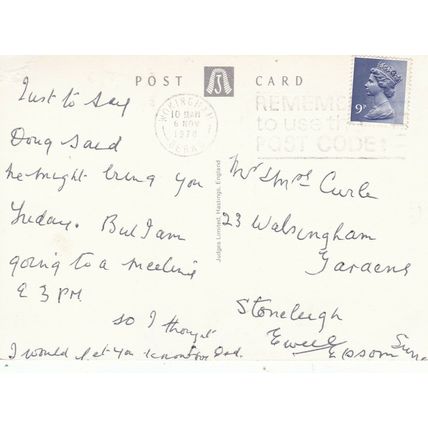 POST CARD
WOKINGHAM
10 30AM
6 NOV
1978
BERKS
REMEMBER
to use the
POST CODE
9P
Just to say
Doug said
he might bring you
Friday. But I am
going to a meeting
@ 3 PM
so I thought
I would let you know Dad.
Judges Limited, Hastings, England
Mr & Mrs Curle
23 Walsingham
Gardens
Stoneleigh
Ewell
Epsom Surre